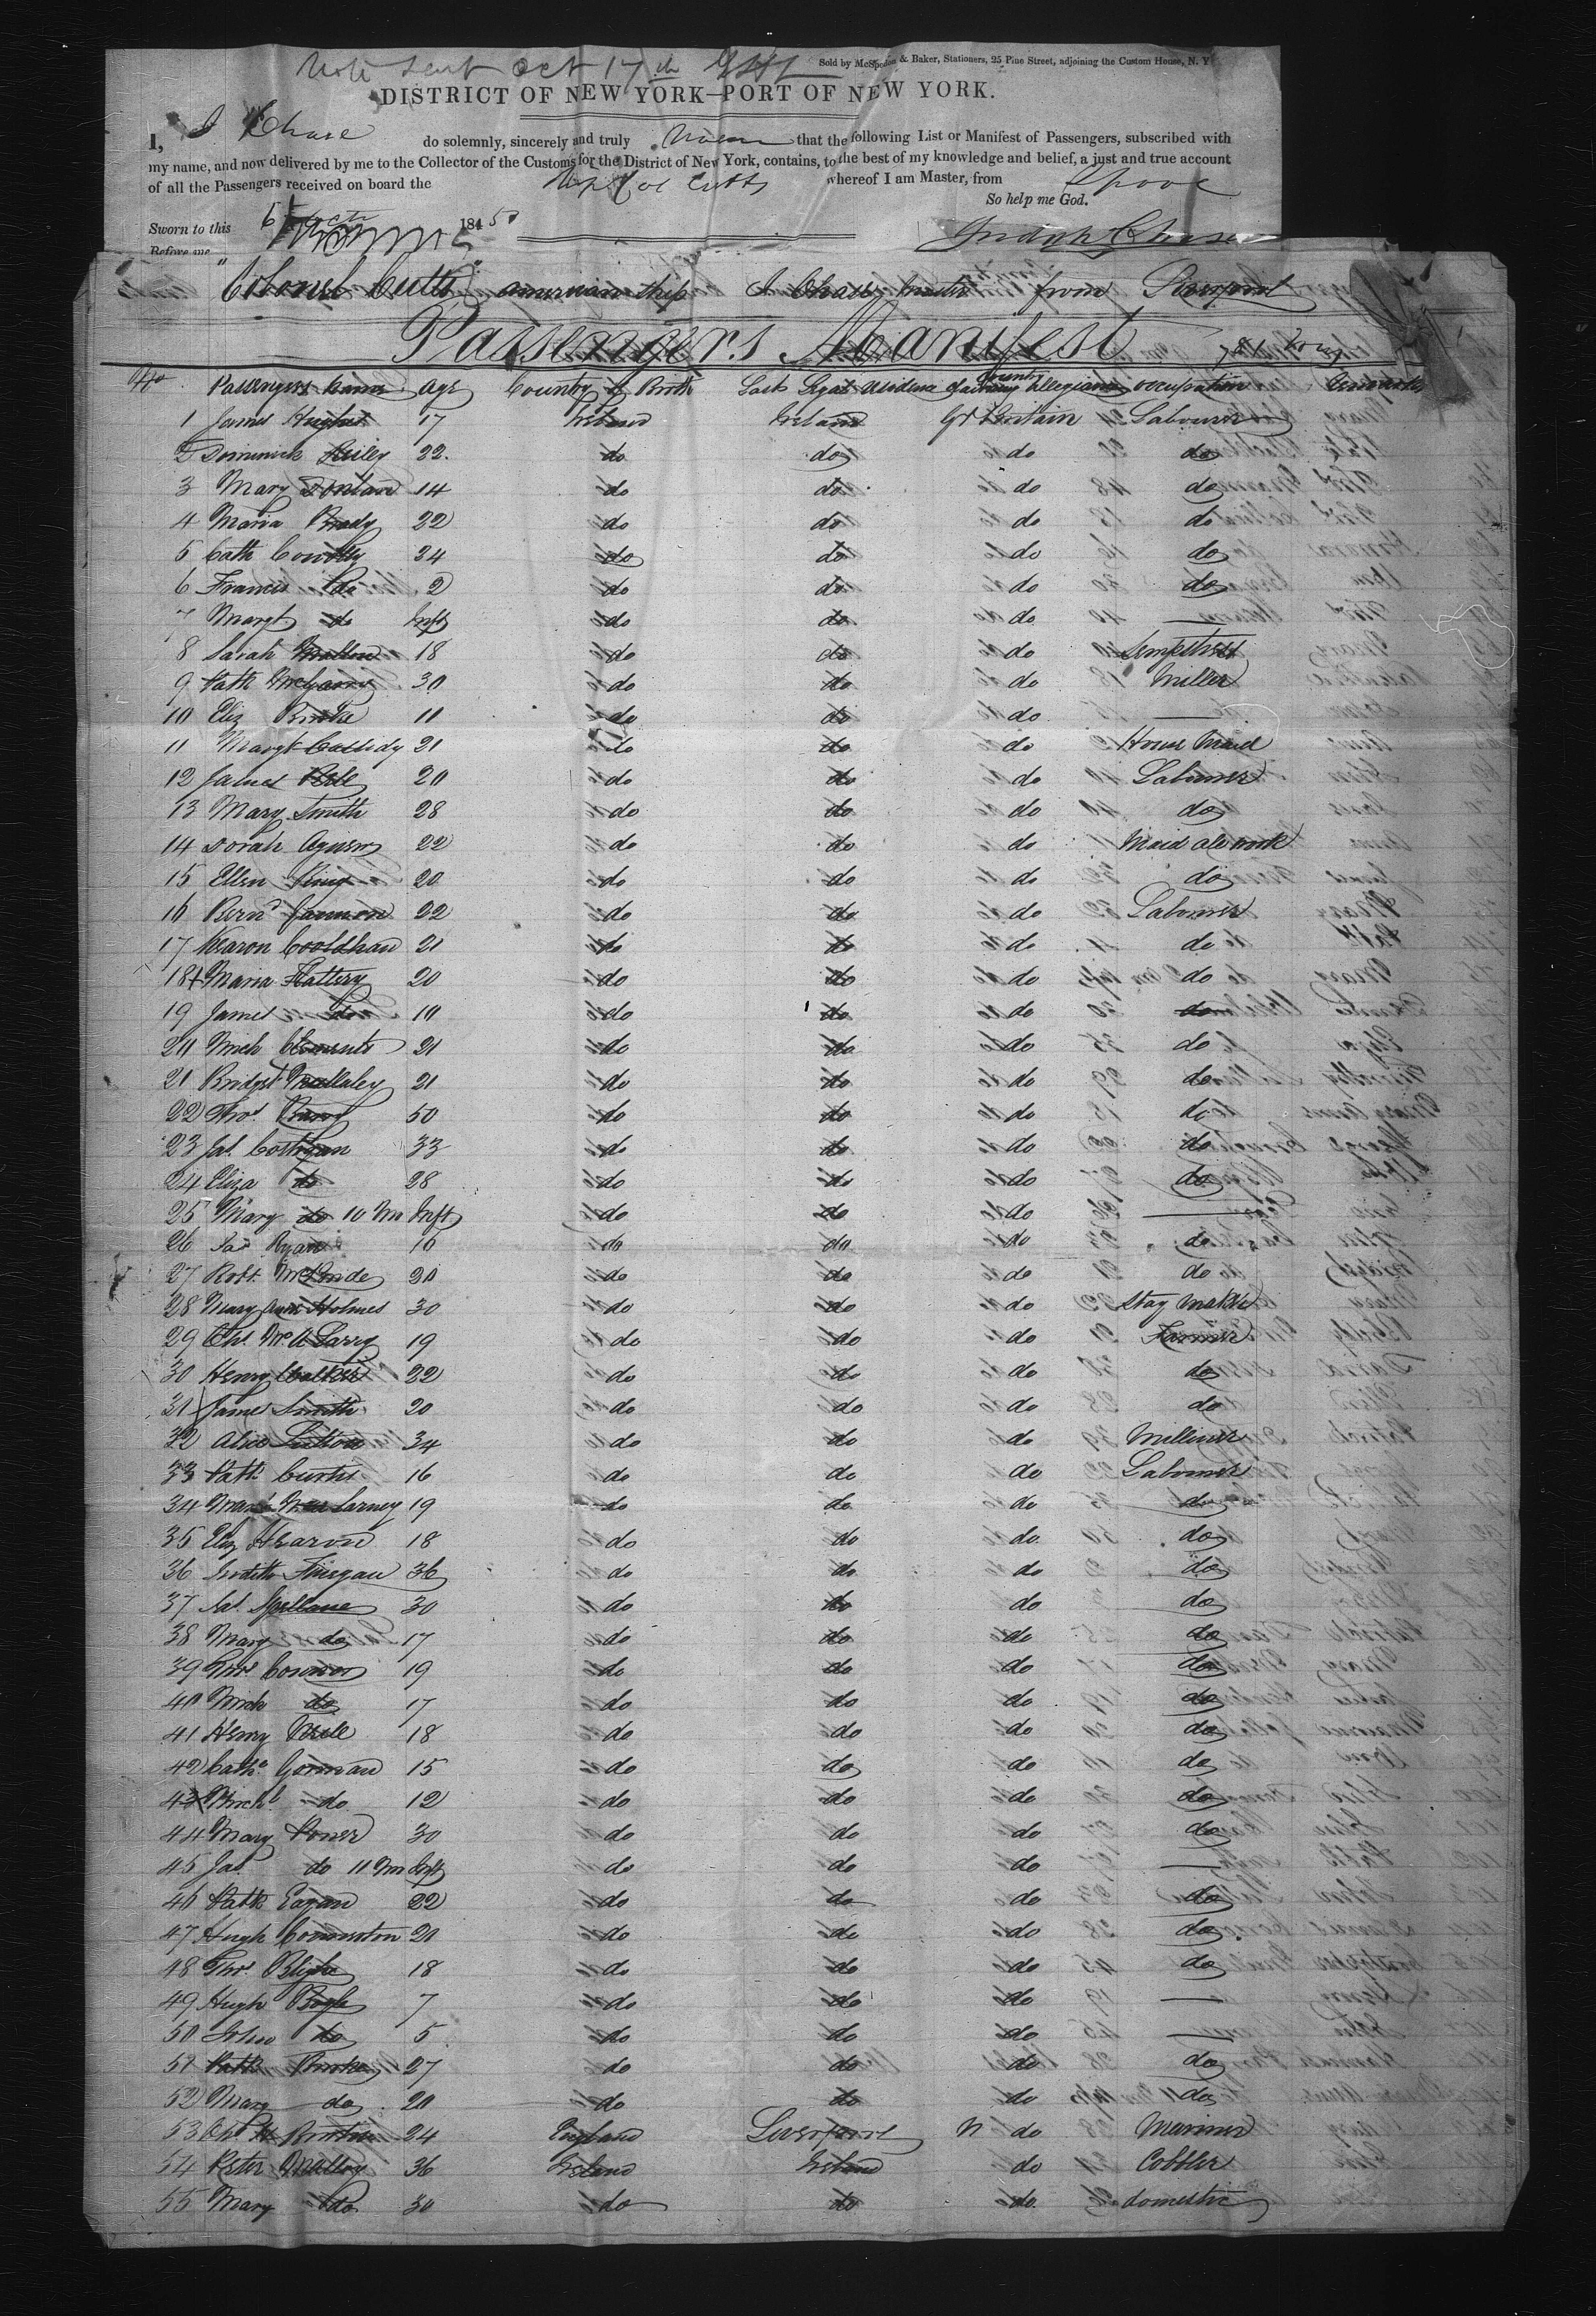 Note sent Oct 17th
Sold by McSpedon & Baker, Stationers, 25 Pine Street, adjoining the Custom House, N. Y
DISTRICT OF NEW YORK—PORT OF NEW YORK.
I, J Chase do solemnly, sincerely and truly swear that the following List or Manifest of Passengers, subscribed with
my name, and now delivered by me to the Collector of the Customs for the District of New York, contains, to the best of my knowledge and belief, a just and true account
of all the Passengers received on board the Ship Col Cutts whereof I am Master, from Lpool
So help me God.
Sworn to this 184 50
Before me Chase
"Colonel Cutts" american ship J Chase Master from Liverpool
Passengers Manifest
No Passengers name age Country of Birth Last Legal residence Country claiming allegiance occupation
1 James Hughes 17 Ireland Ireland Gt Britain Labourer
2 Dominick Reiley 22 do do do do
3 Mary Donlan 14 do do do do
4 Maria Brady 22 do do do do
5 Cath 24 do do do do
6 Francis do 2 do do do do
7 Margt do Inft do do do —
8 Sarah Mallon 18 do do do Sempstress
9 Patk McGann 30 do do do Miller
10 Eliz Burke 11 do do do —
11 Margt Cassidy 21 do do do House Maid
12 James 20 do do do Labourer
13 Mary Smith 28 do do do do
14 Dorah 22 do do do Maid all work
15 Ellen King 20 do do do do
16 Bernd Gannon 22 do do do Labourer
17 Kearon 21 do do do do
18 Maria Flattery 20 do do do do
19 James do 10 do do do do
20 Mich Clements 21 do do do do
21 Bridget Mullaley 21 do do do do
22 Thos 50 do do do do
23 Jas Costigan 33 do do do do
24 Eliza do 28 do do do do
25 Mary do 10 Mo Inft do do do —
26 Jas Ryan 16 do do do do
27 Robt McBride 20 do do do do
28 Mary Ann Holmes 30 do do do Stay maker
29 Chs 19 do do do Farmer
30 Henry Walker 22 do do do do
31 James Smith 20 do do do do
32 Alice Sutton 34 do do do Milliner
33 Patk Curtis 16 do do do Labourer
34 19 do do do do
35 Eliz Hearon 18 do do do do
36 Judith Finegan 36 do do do do
37 Jas Spellane 30 do do do do
38 Mary do 17 do do do do
39 Thos Connor 19 do do do do
40 Mich do 17 do do do do
41 Henry 18 do do do do
42 Cathe Gorman 15 do do do do
43 Michl do 12 do do do do
44 Mary Power 30 do do do do
45 Jas do 11 Mo Inft do do do —
46 Patk Eagan 22 do do do do
47 Hugh 20 do do do do
48 Thos Blighe 18 do do do do
49 Hugh Boyle 7 do do do —
50 John do 5 do do do —
51 Patk Burke 27 do do do do
52 Mary do 20 do do do do
53 Chs 24 England Liverpool do Mariner
54 Peter Malloy 36 Ireland Ireland do Cobbler
55 Mary do 30 do do do domestic